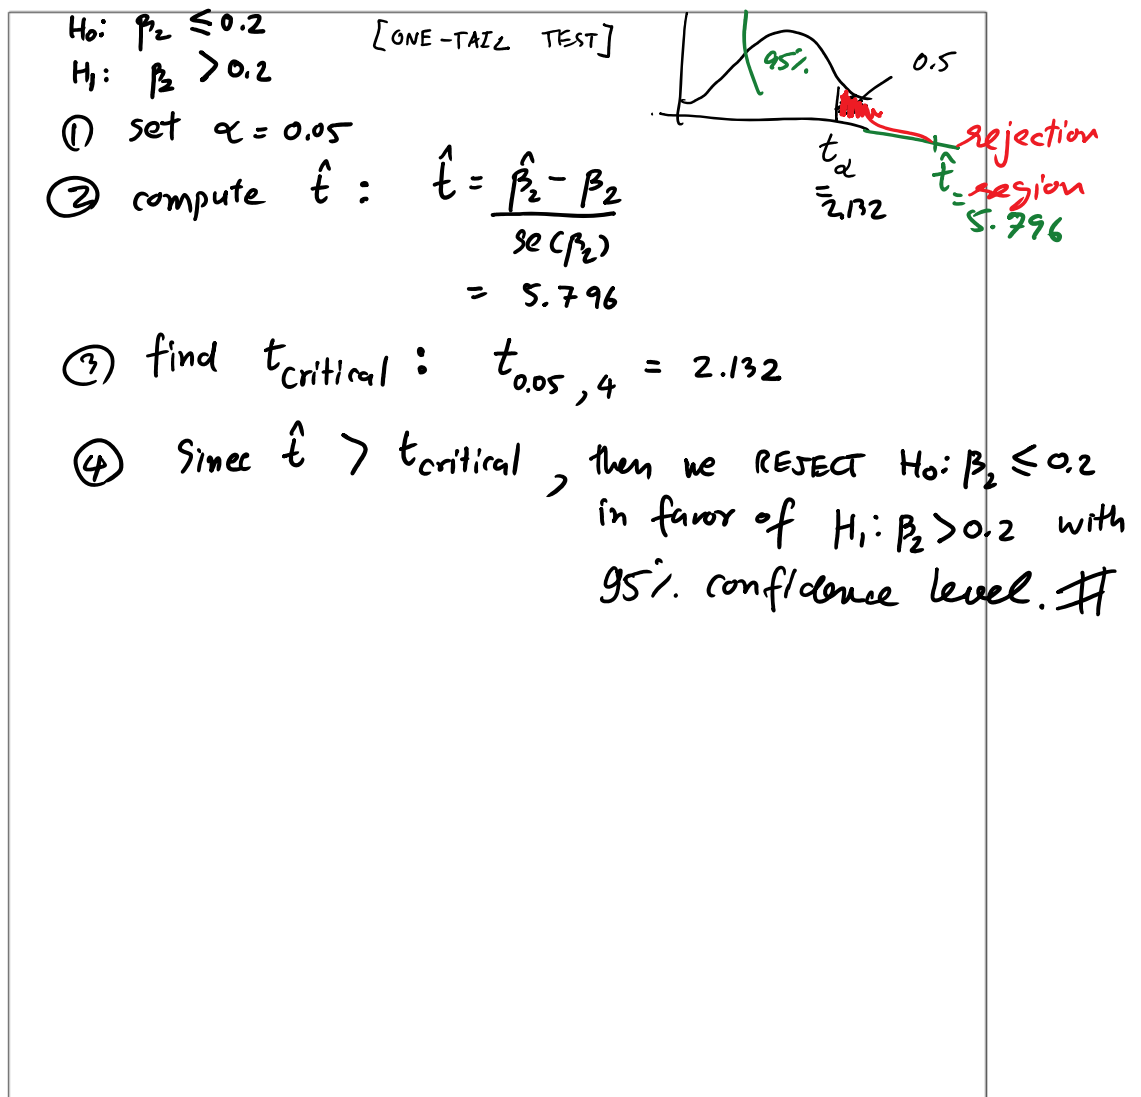 H₀: β₂ ≤ 0.2
H₁: β₂ > 0.2
[ONE-TAIL TEST]
95%
0.5
rejection
region
tα
= 2.132
t̂
= 5.796
① set α = 0.05
② compute t̂ : t̂ = β̂₂ - β₂
se(β₂)
= 5.796
③ find t critical : t 0.05, 4 = 2.132
④ Sinec t̂ > t critical, then we REJECT H₀: β₂ ≤ 0.2
in favor of H₁: β₂ > 0.2 with
95% confidence level. #